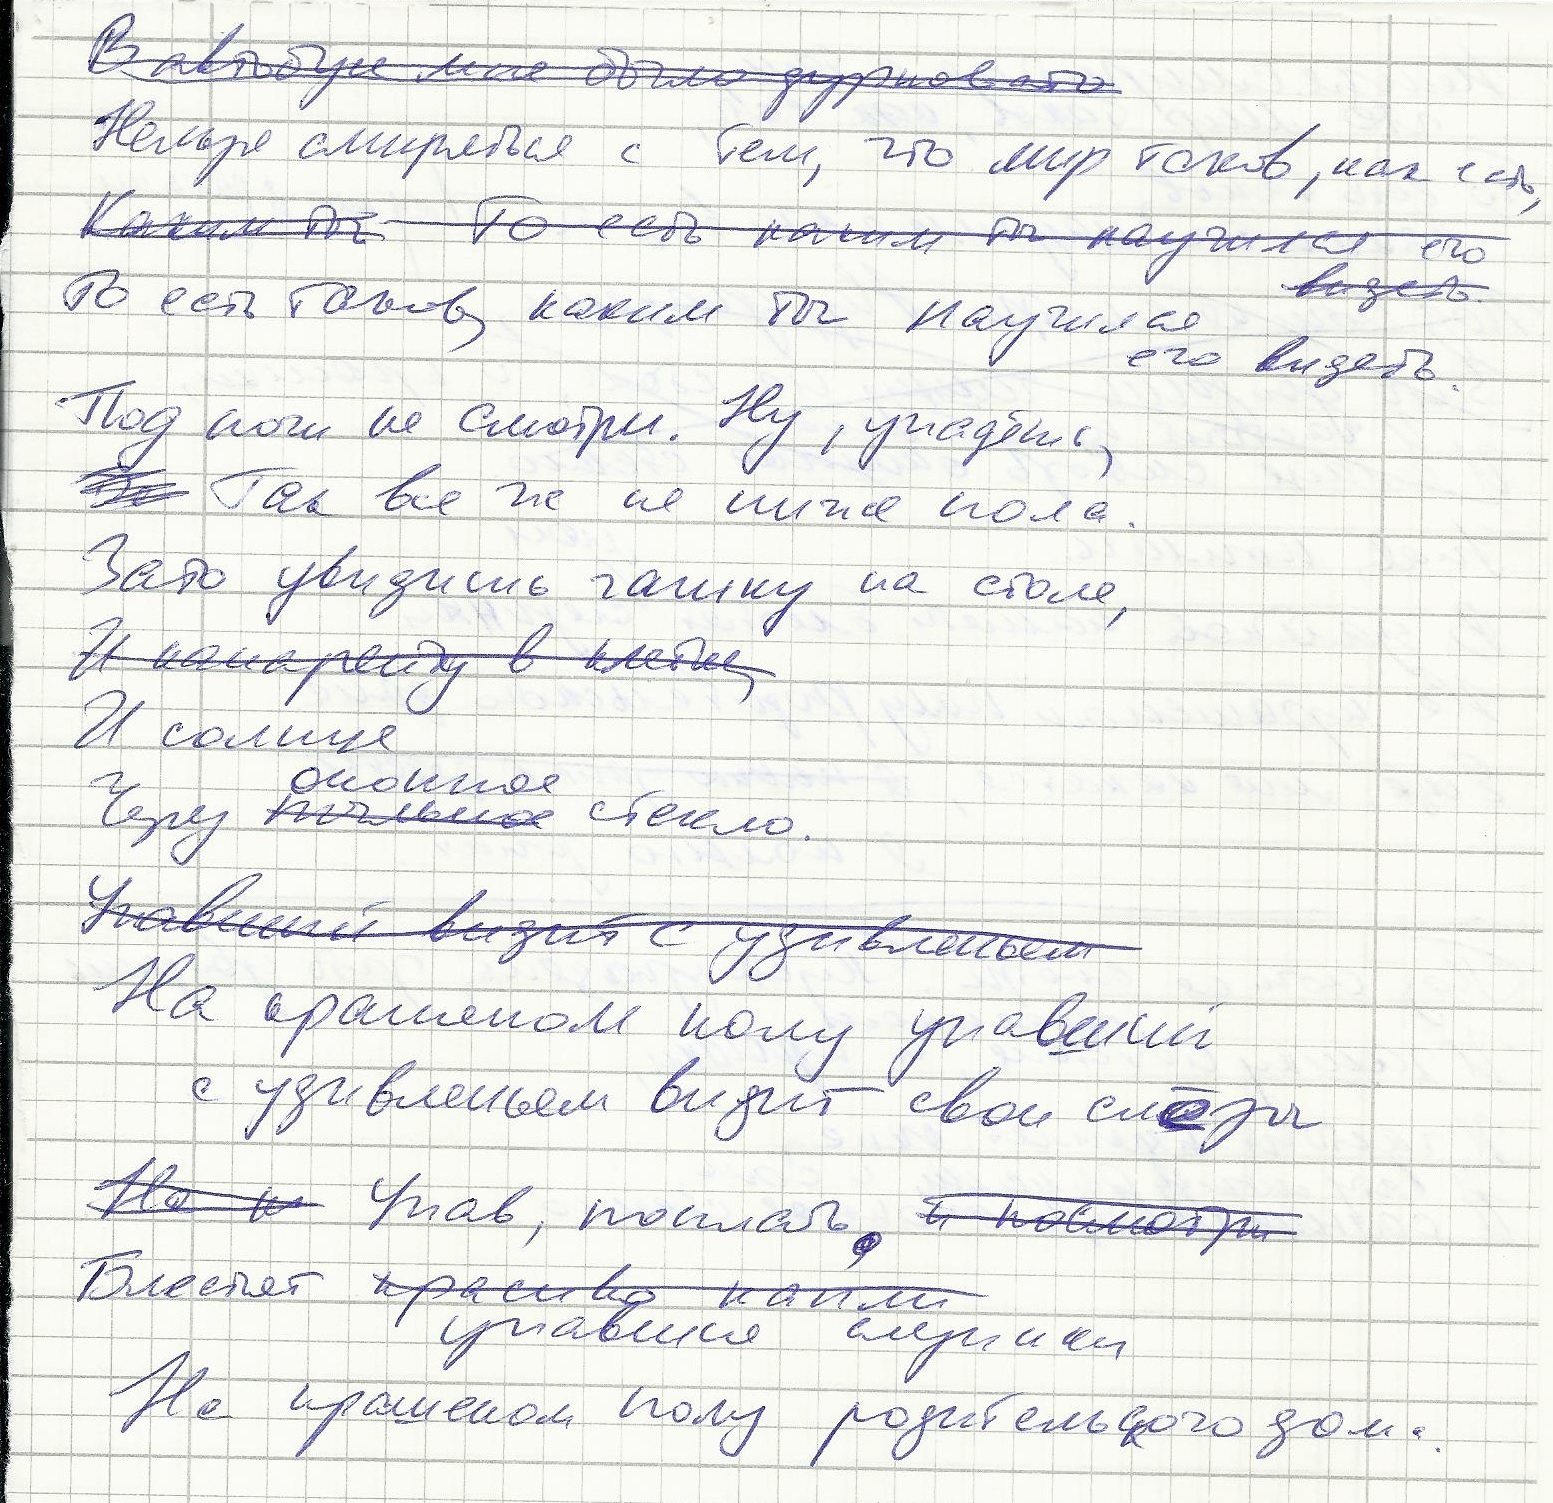 В автобусе мне было дурновато
Нельзя смиряться с тем, что мир таков, как есть,
Каким ты То есть каким ты научился его
видеть.
То есть таков, каким ты научился
его видеть.
Под ноги не смотри. Ну, упадёшь,
Так все же не ниже пола.
Зато увидишь чашку на столе,
И канарейку в клетке,
И солнце
оконное
Через пыльное стекло.
Упавший видит с удивленьем
На крашеном полу упавший
с удивленьем видит свои слезы
На п Упав, поплачь, и посмотри
Блестят красиво капли
упавшие слезинки
На крашеном полу родительского дома.